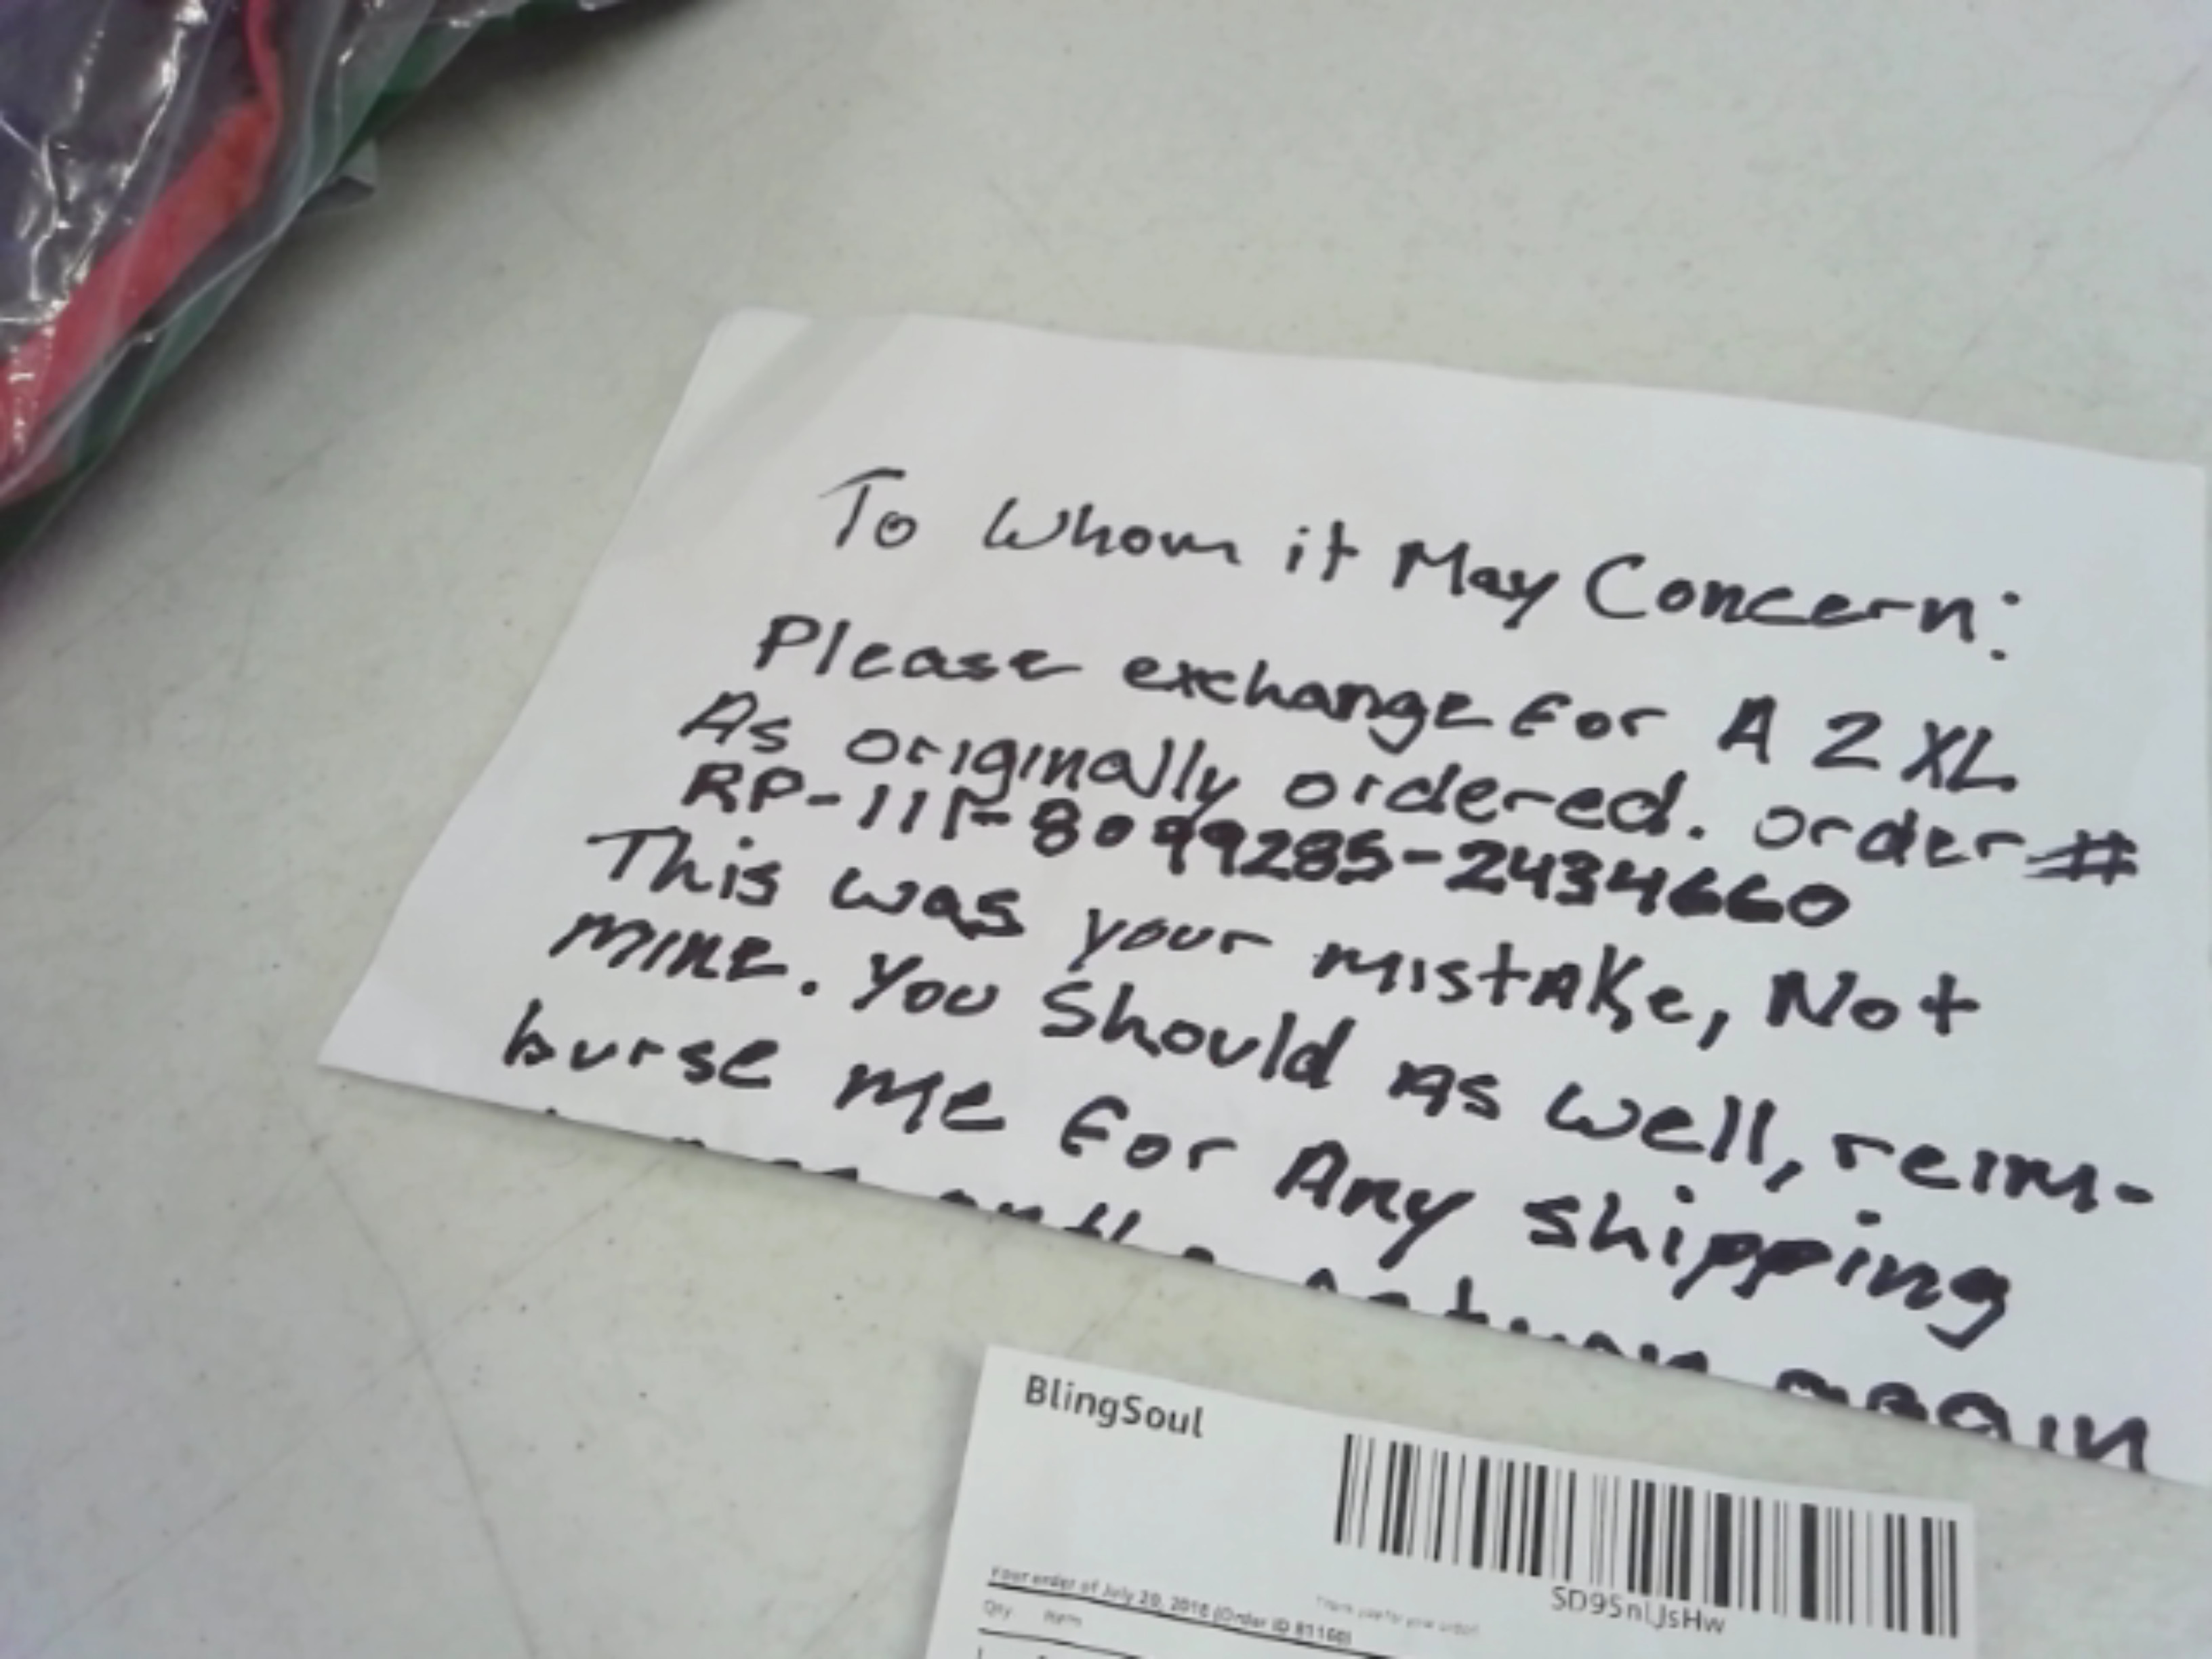 To Whom it May Concern:
Please exchange for A 2 XL
As originally ordered. order #
RP-111-8099285-2434660
This was your mistake, Not
mine. You Should As well, reim-
burse me for Any shipping
again
BlingSoul
SD95nLJsHw
Your order of July 20, 2018 (Order ID 81160)
Thank you for your order!
Qty Item